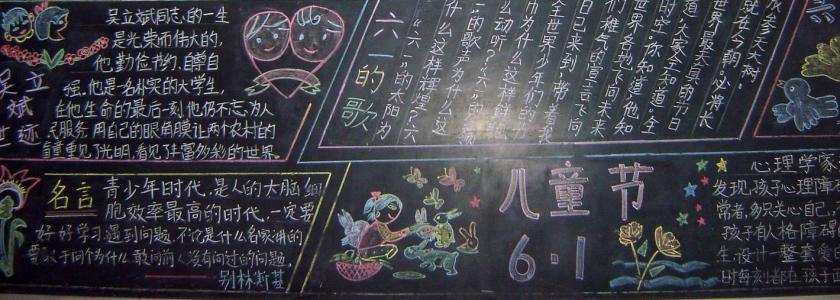 吴立斌事迹
吴立斌同志,的一生
是光荣而伟大的,
他勤俭书约,自尊自
强,他是名朴实的大学生,
在他生命的最后一刻,他仍不忘为人
民服务,用自己的眼角膜让两个农村的
重见了光明,看见了丰富多彩的世界.
六一的歌
“六一”的太阳为
什么这样辉煌?六
一的歌声为什么这
么动听?六一的
为什么这样鲜
全世界少年们的节
日已来到,带着我
们稚气的童言飞向
世界各地飞向未来
的时空,你知道他知
道,大家全知道,全
世界最天真的节日
就在今朝.必将长
成参天大树.
名言
青少年时代,是人的大脑细
胞效率最高的时代,一定要
好好学习,遇到问题,不论是什么名家讲的
要敢于问个为什么,敢问前人没有问过的问题.
别林斯基
儿童节
6·1
心理学家
发现,孩子心理障
常者,多只关心自己,
孩子有人格障碍
生.设计一整套
时每刻都在孩子